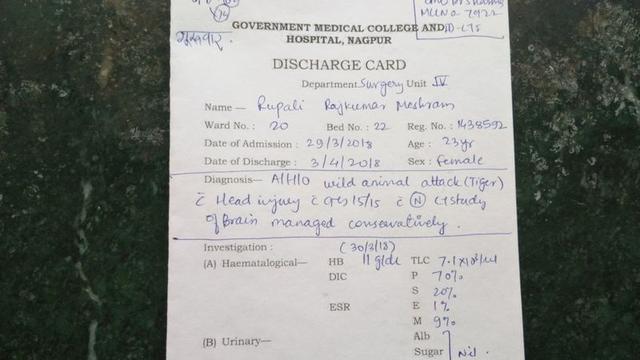 MLC No 7922
GOVERNMENT MEDICAL COLLEGE AND
HOSPITAL, NAGPUR
DISCHARGE CARD
Department Surgery Unit IV
Name — Rupali Rajkumar Meshram
Ward No. : 20 Bed No. : 22 Reg. No. : 1438592
Date of Admission : 29/3/2018 Age : 23yr
Date of Discharge : 3/4/2018 Sex : female
Diagnosis — A/H/O wild animal attack (Tiger)
c̄ Head injury c̄ GCS 15/15 c̄ Ⓝ CT study
of Brain managed conservatively.
Investigation : (30/3/18)
(A) Haematological— HB 11 g/dl TLC
DIC P 70%
S 20%
ESR E 1%
M 9%
(B) Urinary— Alb
Sugar Nil